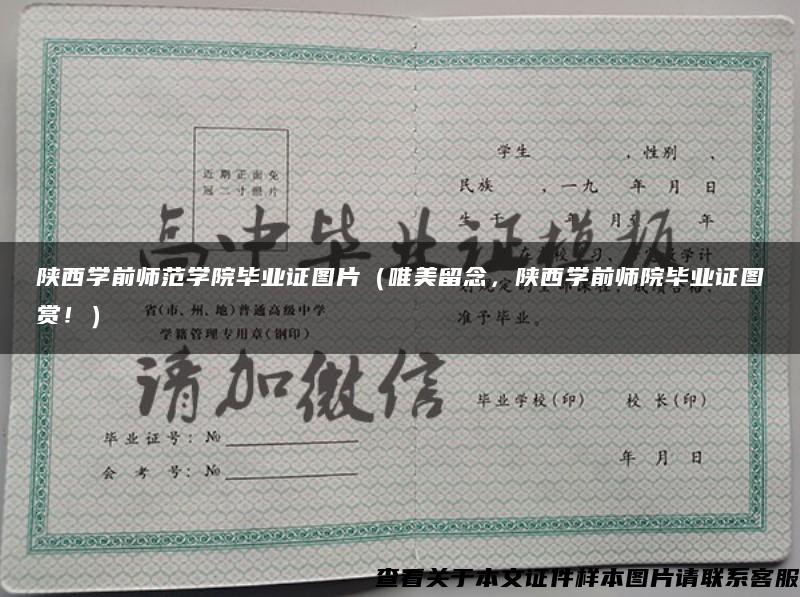 近期正面免
冠二寸照片
省(市、州、地)普通高级中学
学籍管理专用章(钢印)
毕业证号：№
会考号：№
学生 ，性别 、
民族 ，一九 年 月 日
生 于 年 月至 年
准予毕业。
毕业学校(印) 校长(印)
年 月 日
高中毕业证模板
请加微信
陕西学前师范学院毕业证图片（唯美留念，陕西学前师院毕业证图
赏！）
查看关于本文证件样本图片请联系客服